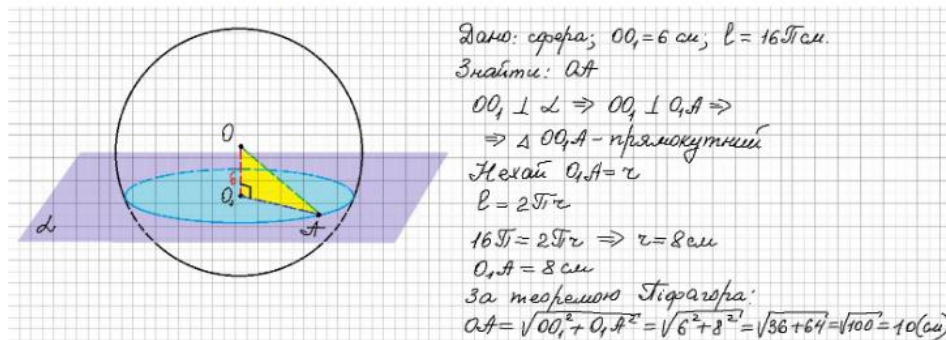 Дано: сфера; OO₁=6 см; l = 16π см.
Знайти: OA
OO₁ ⊥ α ⇒ OO₁ ⊥ O₁A ⇒
⇒ △ OO₁A - прямокутний
Нехай O₁A = r
l = 2πr
16π = 2πr ⇒ r = 8 см
O₁A = 8 см
За теоремою Піфагора:
OA = √OO₁² + O₁A² = √6² + 8² = √36 + 64 = √100 = 10(см)
O
6
O₁
A
α